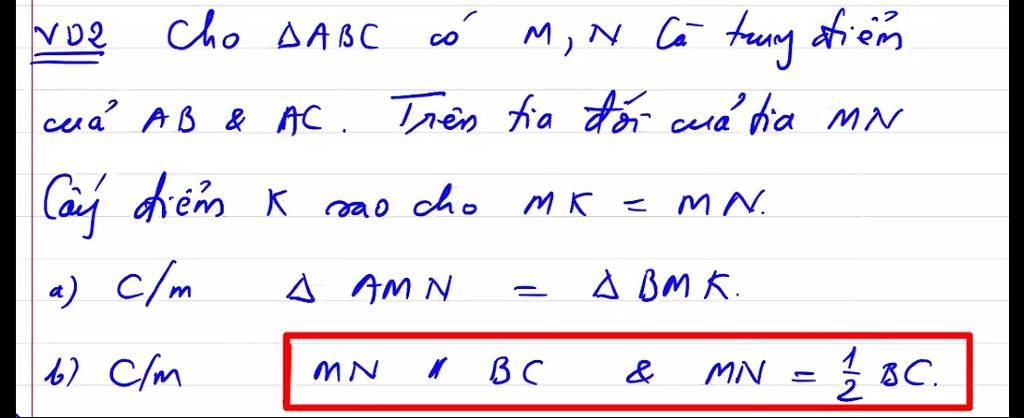 VD2 Cho ΔABC có M, N là trung điểm
của AB & AC. Trên tia đối của tia MN
lấy điểm K sao cho MK = MN.
a) C/m Δ AMN = Δ BMK.
b) C/m MN // BC & MN = 1/2 BC.